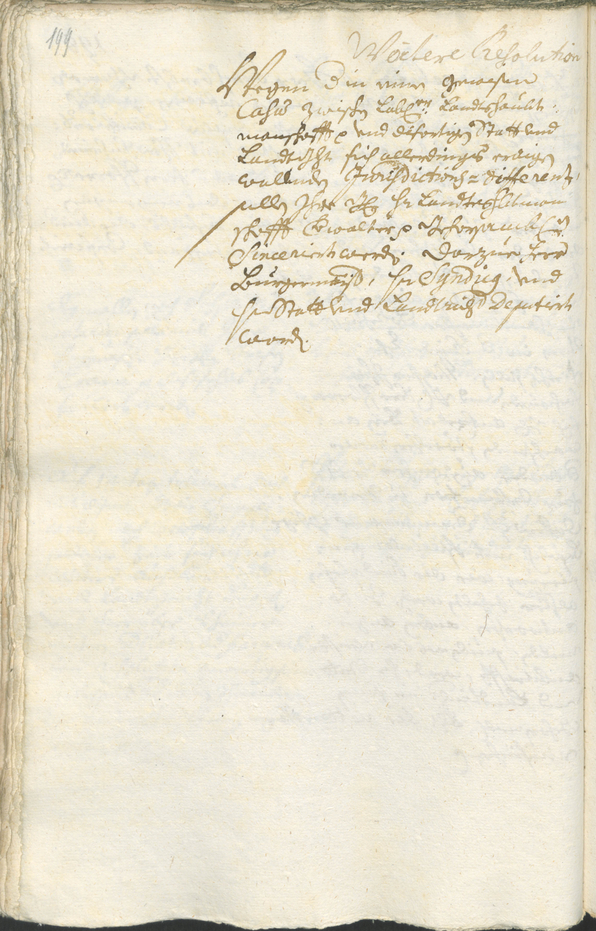 199
Weitere Resolution
Wegen d in einem gewesen
Casus zwischen Löbl: Landtshaubt:
manschafft p und disortigen Statt und
Landt sich allerdings eraigen
wallenden Jurisdictions= differenti
sollen Ihre Hr Landtshaubtman
schafft Verwalter p gehorsambl:
Sinceriert werden. Darzue Herr
Burgermaister, Herr Syndicg. und
Herr Statt und Landt Deputiert
worden.